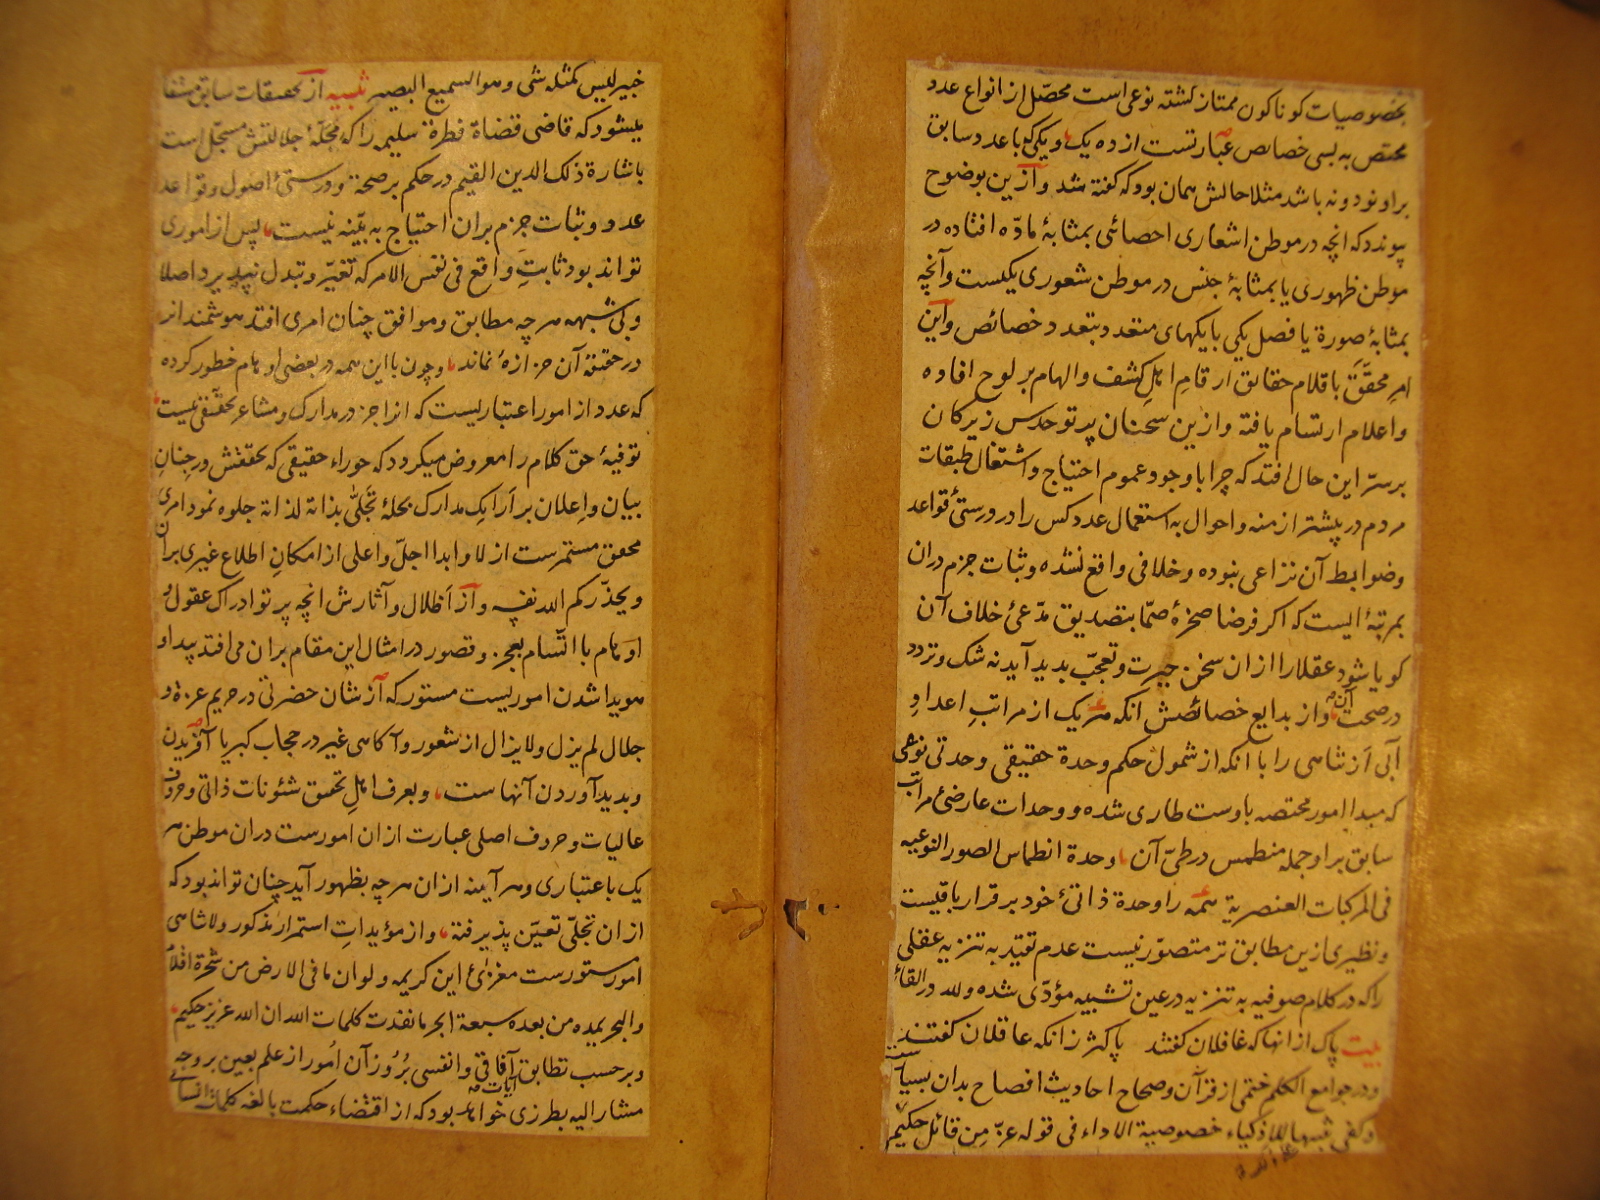 بخصوصیات کوناکون ممتاز کشته نوعی است محصّل از انواع عدد
مختص به بسی خصایص عبارتست از ده یک و یکی که با عدد سابق
براو نود و نه باشد مثلا حالش همان بود که کفته شد و ازین بوضوح
پیوندد که انچه در موطن اشعاری احصائی بمثابهٔ مادّه افتاده در
موطن ظهوری یا بمثابهٔ جنس در موطن شعوری یکیست و آنچه
بمثابهٔ صورة یا فصل یکی با یکهای متعدد بتعدد خصائص و این
امرِ محقّق باقلام حقایق ارقامِ اهلِ کشف و الهام بر لوح افاده
و اعلام ارتسام یافته و ازین سخنان پرتو حدس زیرکان
بر سرّ این حال افتد که چرا با وجود عموم احتیاج و اشتغال طبقات
مردم در پیشتر ازمنه و احوال به استعمال عدد کس را در درستئ قواعد
و ضوابط آن نزاعی نبوده و خلافی واقع نشده و ثبات جزم دران
بمرتبهٔ ایست که اکر فرضا صخرهٔ صمّا بتصدیق مدّعئ خلاف آن
کویا شود عقلا را از ان سخن حیرت و تعجّب بدید آید نه شک و تردد
در صحت این و از بدایع خصائصش انکه هر یک از مراتبِ اعدادِ
آبی از تناهی را با انکه از شمول حکم وحدة حقیقی وحدتی نوعی
که مبدا امور مختصه باوست طاری شده و وحدات عارضئ مراتب
سابق براو جمله منطمس در طیّ آن وحدة انطماس الصور النوعیه
فی المرکبات العنصریة همه را وحدة ذاتئ خود برقرار باقیست
و نظیری ازین مطابق تر متصوّر نیست عدم تقیّد به تنزیه عقلی
را که در کلام صوفیه به تنزیه در عین تشبیه مؤدّی شده و لله در القائل
بیت پاک از انها که غافلان کفتند پاکتر زانکه عاقلان کفتند
و در جوامع الکلم ختمی از قرآن و صحاح احادیث افصاح بدان بسیارست
و کفی تنبیها للاذکیاء خصوصیة الاداء فی قوله عزّ مِن قائل حکیم
خبیر لیس کمثله شی و هو السمیع البصیر تنبیه از تحقیقات سابق مستفاد
میشود که قاضی قضاة فطرة سلیمه را که محکمهٔ جلالتش مسجّل است
باشارة ذلک الدین القیم در حکم بر صحة و درستئ اصول و قواعد
عدد و ثبات جزم بران احتیاج به بیّنه نیست پس از اموری
تواند بود ثابتِ واقع فی نفس الامر که تغیّر و تبدل نپذیرد اصلا
و بی شبهه هر چه مطابق و موافق چنان امری افتد هوشمند را در
در حقیقة آن حزازهٔ نماند و چون با این همه در بعضی اوهام خطور کرده
که عدد از امور اعتباریست که انرا جز در مدارک و مشاعر تحقّقی نیست
توفیهٔ حق کلام را معروض میکردد که حوراء حقیقی که تحققش در جنانِ
بیان و اعلان بر ارایکِ مدارک بحلهٔ تجلّی بذاته لذاته جلوه نمود امری
محقق مستمرست ازلا و ابدا اجلّ و اعلی از امکانِ اطلاع غیری بران
و یحذّرکم الله نفسه و از اظلال و آثارش انچه پرتو ادراک عقول و
اوهام با اتّسام بعجز و قصور در امثال این مقام بران می افتد پیدا و
هویدا شدن امور یست مستور که از شان حضرتی در حریم عزة و
جلال لم یزل و لا یزال از شعور و آکاهی غیر در حجاب کبریا آفریدن
و بدید آوردن آنهاست و بعرف اهلِ تحقیق شئونات ذاتی و حروف
عالیات و حروف اصلی عبارت از ان امورست دران موطن هر
یک باعتباری و هر آیینه از ان هر چه بظهور آید چنان تواند بود که
از ان تجلّی تعیّن پذیرفته و از مؤیداتِ استمرار مذکور و لاتناهی
امور مستورست مغزئ این کریمه و لو ان ما فی الارض من شجرة اقلام
والبحر یمده من بعده سبعة ابحر ما نفدت کلمات الله ان الله عزیز حکیم
و برحسب تطابق آفاقی و انفسی بُروز آن امور از علم بعین بر وجه
مشارالیه بطرزی خواهد بود که از اقتضاء حکمت بالغه کلمات انسانی
آیات